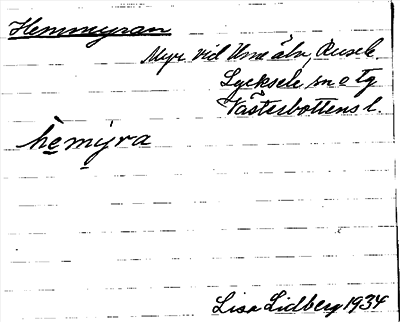 Hemmyran
Myr vid Ume älv, Rusele
Lycksele sn o tg
Västerbottens l.
hemýra
Lisa Lidberg 1934